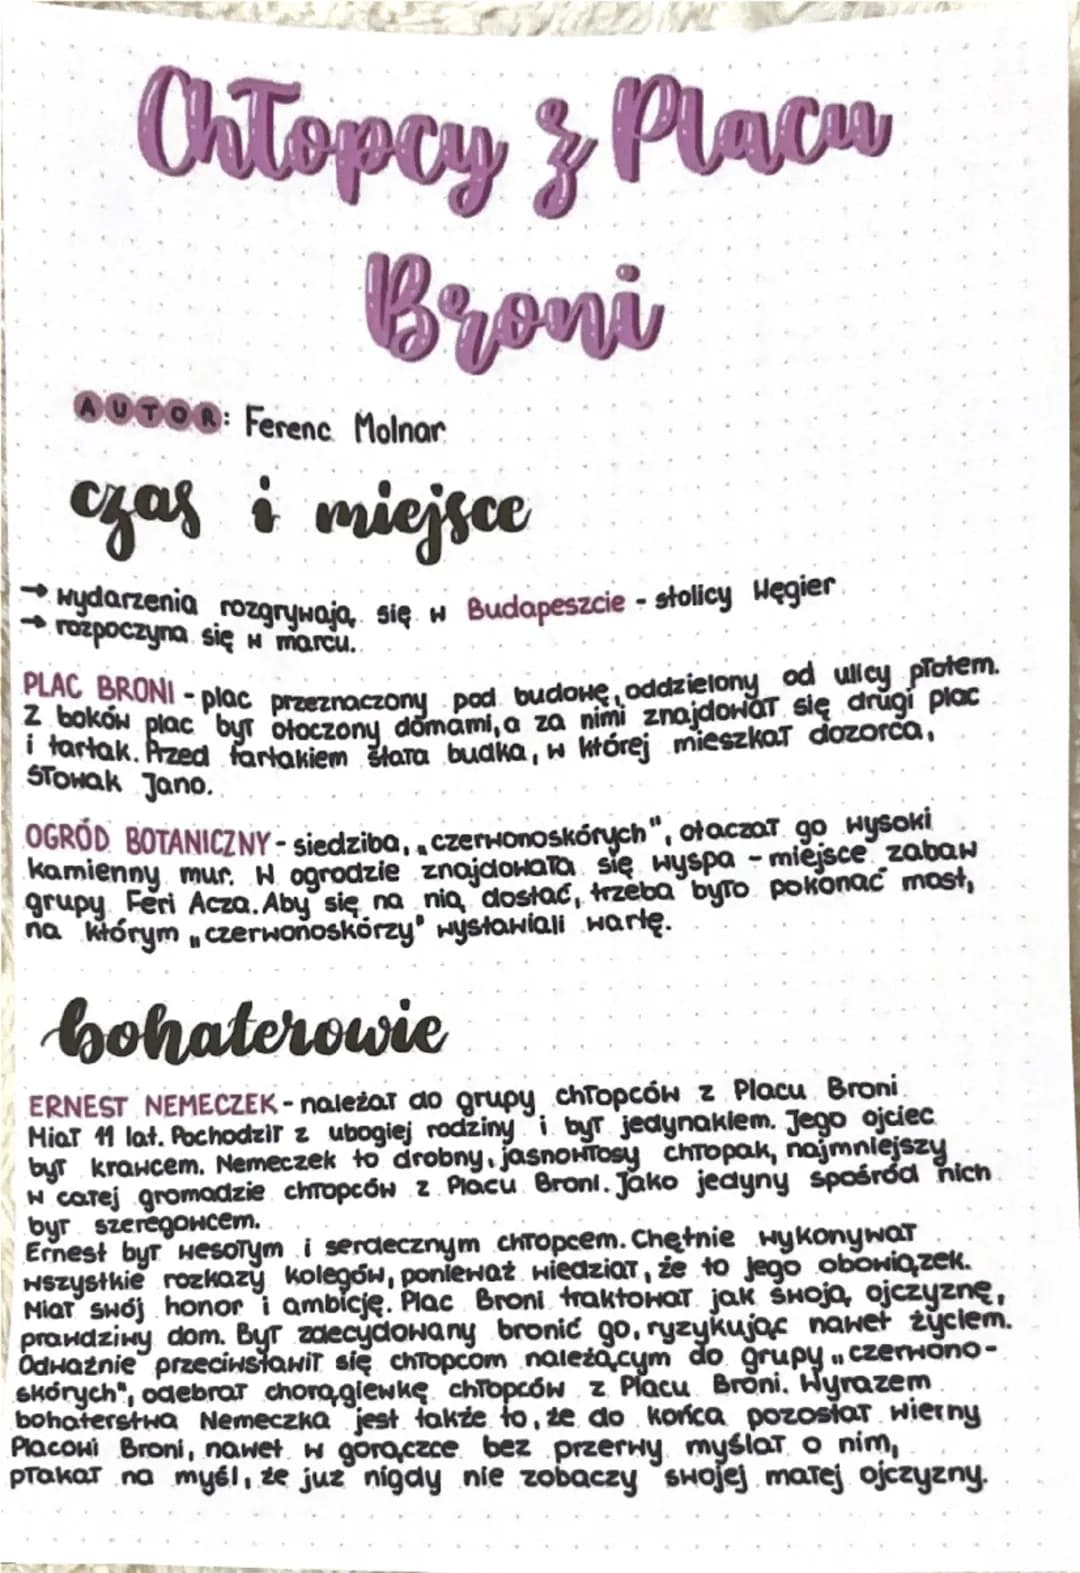 Chłopcy z Placu
Broni
AUTOR: Ferenc Molnar
czas i miejsce
→ wydarzenia rozgrywają się w Budapeszcie - stolicy Węgier
→ rozpoczyna się w marcu.
PLAC BRONI - plac przeznaczony pod budowę, oddzielony od ulicy płotem.
Z boków plac był otoczony domami, a za nimi znajdował się drugi plac
i tartak. Przed tartakiem stara budka, w której mieszkał dozorca,
Słowak Jano.
OGRÓD BOTANICZNY - siedziba „czerwonoskórych", otaczał go wysoki
kamienny mur. W ogrodzie znajdowała się wyspa - miejsce zabaw
grupy Feri Acza. Aby się na nią dostać, trzeba było pokonać most,
na którym „czerwonoskórzy" wystawiali wartę.
bohaterowie
ERNEST NEMECZEK - należał do grupy chłopców z Placu Broni
Miał 11 lat. Pochodził z ubogiej rodziny i był jedynakiem. Jego ojciec
był krawcem. Nemeczek to drobny, jasnowłosy chłopak, najmniejszy
w całej gromadzie chłopców z Placu Broni. Jako jedyny spośród nich
był szeregowcem.
Ernest był wesołym i serdecznym chłopcem. Chętnie wykonywał
wszystkie rozkazy kolegów, ponieważ wiedział, że to jego obowiązek.
Miał swój honor i ambicję. Plac Broni traktował jak swoją ojczyznę,
prawdziwy dom. Był zdecydowany bronić go, ryzykując nawet życiem.
Odważnie przeciwstawił się chłopcom należącym do grupy „czerwono-
skórych", odebrał chorągiewkę chłopców z Placu Broni. Wyrazem
bohaterstwa Nemeczka jest także to, że do końca pozostał wierny
Placowi Broni, nawet w gorączce bez przerwy myślał o nim,
płakał na myśl, że już nigdy nie zobaczy swojej małej ojczyzny.